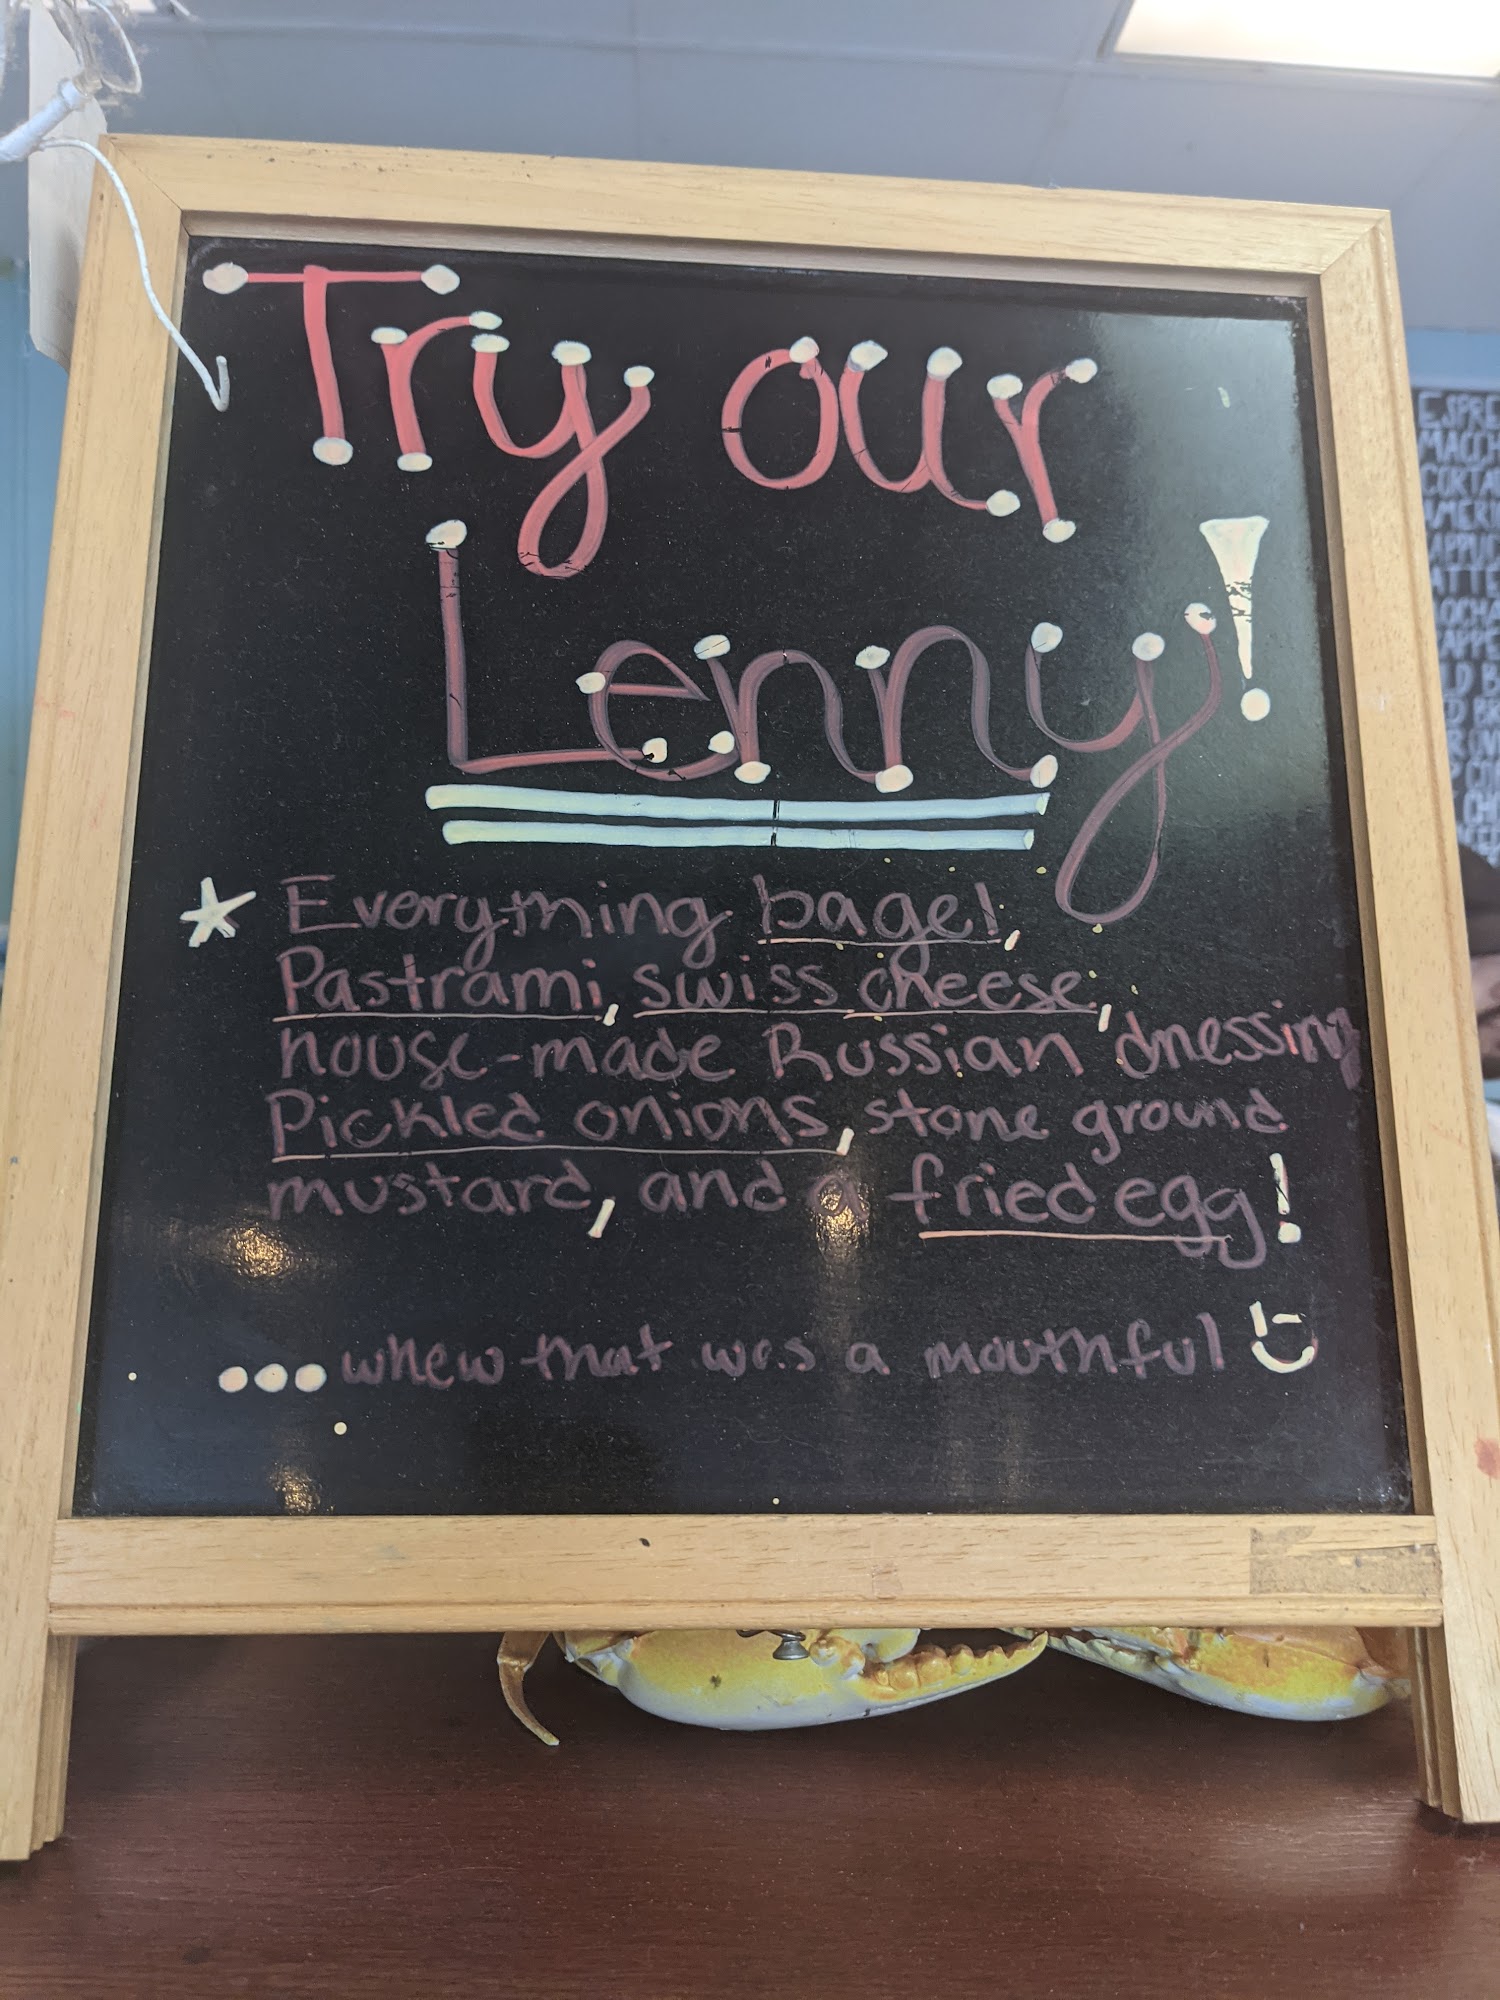 Try our
Lenny!
* Everything bagel,
Pastrami, swiss cheese,
house-made Russian dressing
Pickled onions, stone ground
mustard, and a fried egg!
...whew that was a mouthful
ESPRE
MACCH
CORTA
AMERI
APPUC
ATTE
OCHA